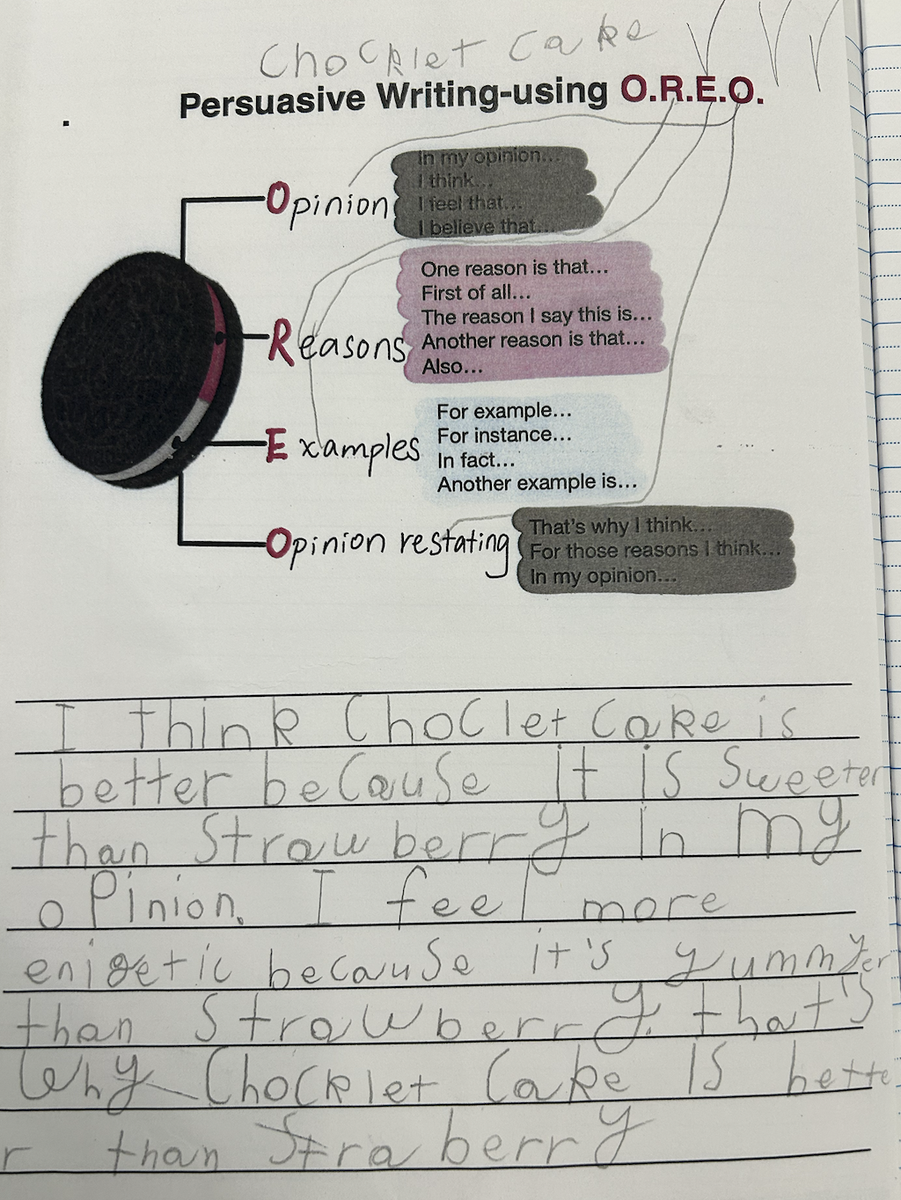 Chocklet cake
Persuasive Writing-using O.R.E.O.
Opinion
In my opinion...
I think...
I feel that...
I believe that...
Reasons
One reason is that...
First of all...
The reason I say this is...
Another reason is that...
Also...
Examples
For example...
For instance...
In fact...
Another example is...
Opinion restating
That's why I think...
For those reasons I think...
In my opinion...
I think Choclet Cake is
better because it is sweeter
than Strawberry In my
opinion. I feel more
enigetic because it's yummyer
than Strawberry. that's
Why Chocklet Cake IS bette
r than Straberry